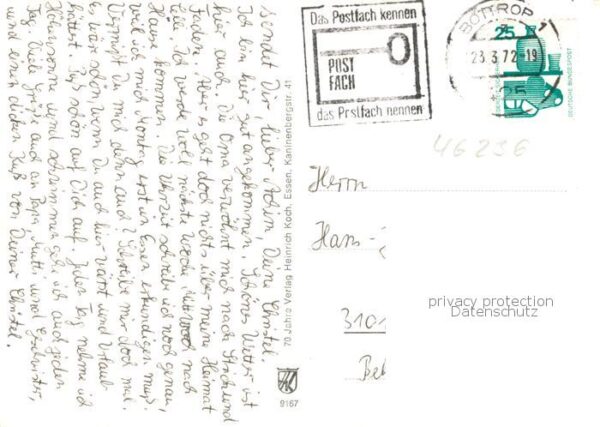 sendet Dir, lieber Achim, Deine Christel.
Ich bin hier gut angekommen. Schönes Wetter ist
hier auch. Die Oma verwöhnt mich nach Strich und
Faden. Aber es geht doch nichts über meine Heimat
Celle. Ich werde voll nächste Woche Mittwoch nach
Hause kommen. Die Uhrzeit schreib ich noch genau,
weil ich mich Montag erst in Essen erkundigen muß.
Vermißt Du mich denn auch? Schreibe mir doch mal.
Es wär schön wenn Du auch hier wärst und Urlaub
hättest. Paß schön auf Dich auf. Jeden Tag nehme ich
Höhensonne und schwimmen geh ich auch jeden
Tag. Viele Grüße auch an Papa, Mutti und Geschwister,
und einen dicken Kuß von Deiner Christel.
70 Jahre Verlag Heinrich Koch, Essen, Kaninenbergstr. 41
9167
Das Postfach kennen
POST
FACH
das Postfach nennen
BOTTROP 1
23.3.72-19
25
DEUTSCHE BUNDESPOST
46236
Herrn
Hans-
3101
Be
privacy protection
Datenschutz